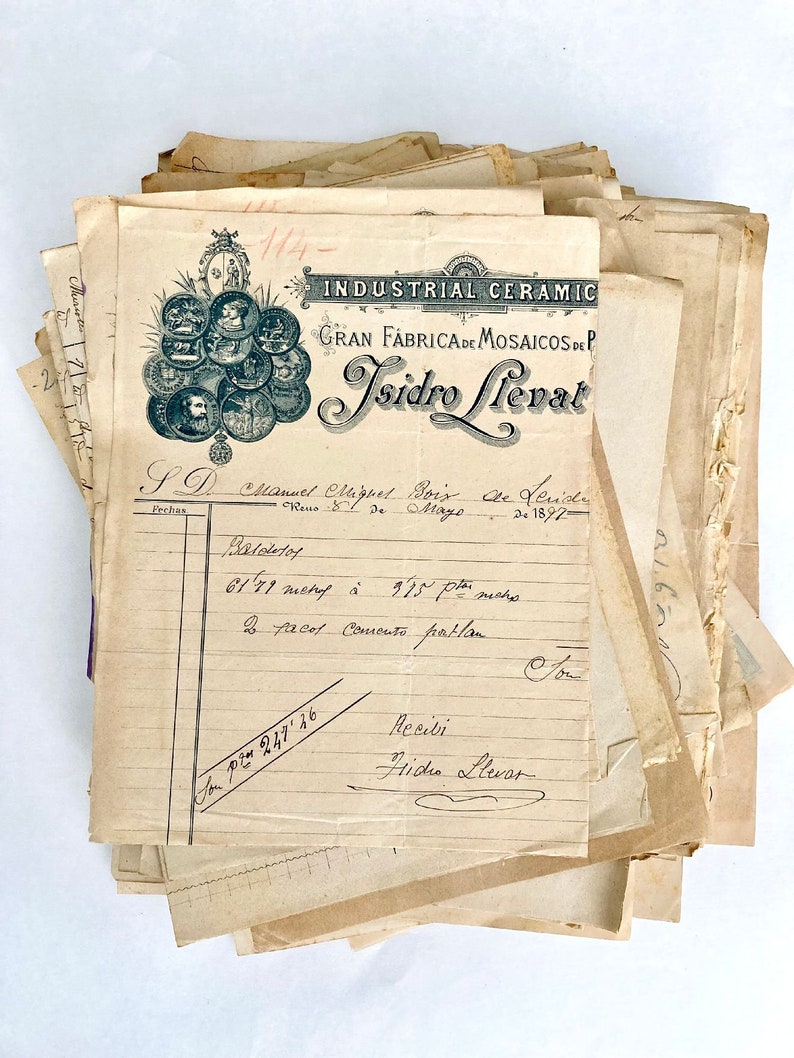 -114-
INDUSTRIAL CERÁMIC
GRAN FÁBRICA DE MOSAICOS DE P
Isidro Llevat
S. D. Manuel Miguel Boix de Leride
Fechas.
Reus 8 de Mayo de 1897
Baldosas
61'79 metros á 3'75 ptas metro
2 sacos cemento portlan
Son
Son ptas 247'46
Recibi
Isidro Llevat